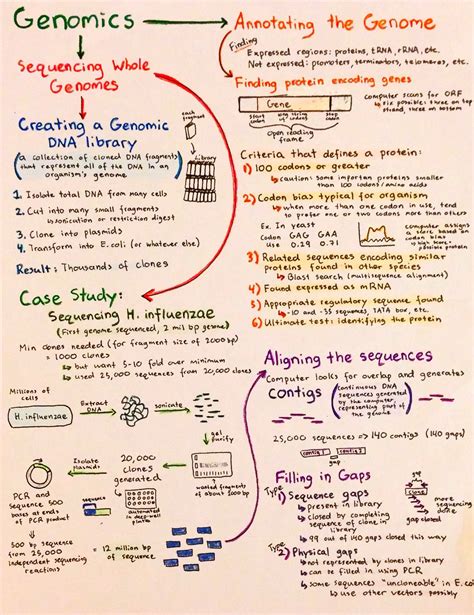 Genomics
Sequencing Whole
Genomes
Creating a Genomic
DNA library
(a collection of cloned DNA fragments
that represent all of the DNA in an
organism's genome)
each
fragment
library
1. Isolate total DNA from many cells
2. Cut into many small fragments
↳ sonication or restriction digest
3. Clone into plasmids
4. Transform into E.coli (or whatever else)
Result: Thousands of clones
Case Study:
Sequencing H. influenzae
(First genome sequenced, 2 mil bp genome)
Min clones needed (for fragment size of 2000 bp)
= 1000 clones
↳ but want 5-10 fold over minimum
↳ used 25,000 sequences from 20,000 clones
Millions of
cells
H. influenzae
Extract
DNA
sonicate
gel
purify
wanted fragments
of about 2000 bp
20,000
clones
generated
Isolate
plasmids
automated in
deep-well
plates
sequence
PCR and
Sequence 500
bases at ends
of PCR product
500 bp of
sequence from
25,000
independent sequencing
reactions
= 12 million bp
of sequence
Annotating the Genome
Finding
Expressed regions: proteins, tRNA, rRNA, etc.
Not expressed: promoters, terminators, telomeres, etc.
Finding protein encoding genes
Gene
start
codon
long string
of codons
stop
codon
Open reading
frame
computer scans for ORF
↳ six possible: three on top
strand, three on bottom
Criteria that defines a protein:
1) 100 codons or greater
↳ caution: some important proteins smaller
than 100 codons/amino acids
2) Codon bias typical for organism
↳ when more than one codon in use, tend
to prefer one or two codons more than others
Ex. In yeast
Codon GAG GAA
Use 0.29 0.71
computer assigns
a score based on
codon bias
↳ high score =
possible protein
3) Related sequences encoding similar
proteins found in other species
↳ Blast search (multisequence alignment)
4) Found expressed as mRNA
5) Appropriate regulatory sequence found
↳ -10 and -35 sequences, TATA box, etc.
6) Ultimate test: identifying the protein
Aligning the sequences
Computer looks for overlap and generates
contigs
(continuous DNA
sequences generated
by the computer
representing part of
the genome)
25,000 sequences ⇒ 140 contigs (140 gaps)
contig 1
contig 2
gap
Filling in Gaps
Type
1) Sequence gaps
↳ present in library
↳ closed by completing
sequence of clone in
library
↳ 99 out of 140 gaps closed this way
gap
clone
more
sequencing
done
gap closed
Type
2) Physical gaps
↳ not represented by clones in library
↳ can be filled in using PCR
↳ some sequences "uncloneable" in E.coli
↳ use other vectors possibly